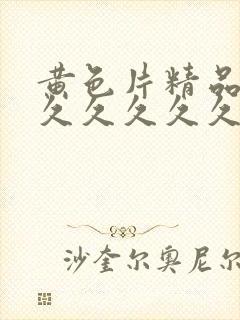 黄色片精品
久久久久久
沙奎尔奥尼尔